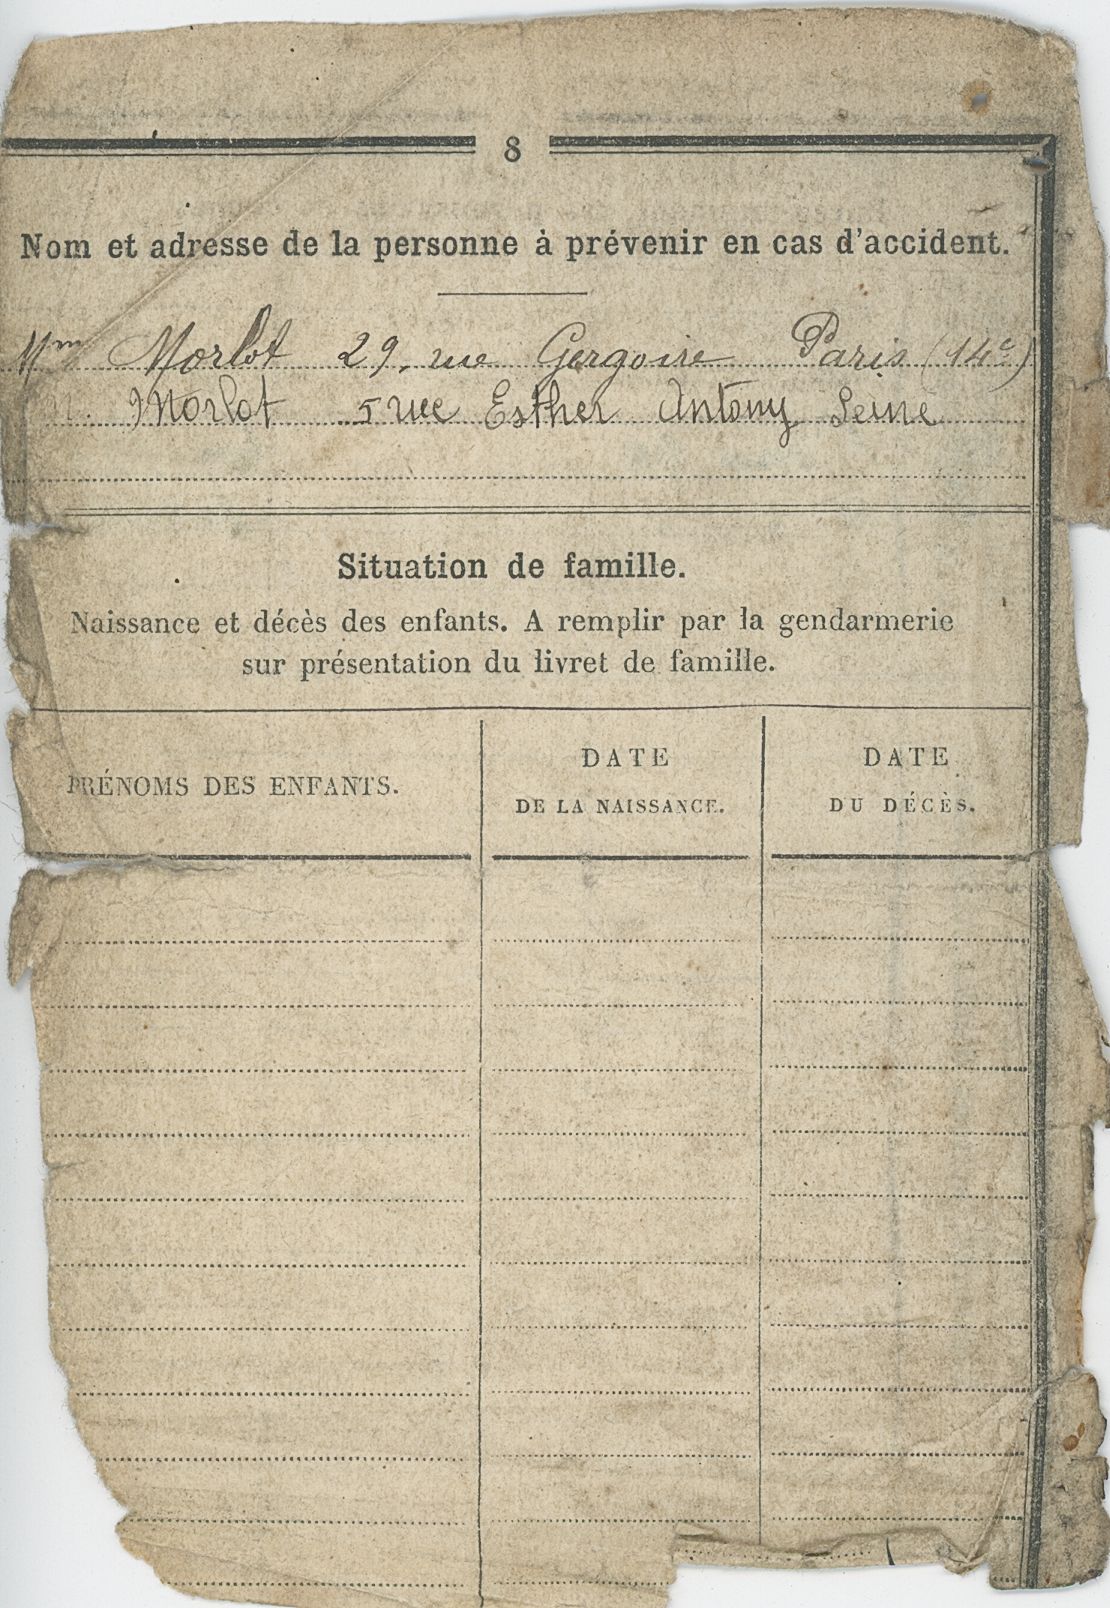 8
Nom et adresse de la personne à prévenir en cas d'accident.
Mme Morlot 29, rue Gergoire Paris (14e)
Morlot 5 rue Esther Antony Seine
Situation de famille.
Naissance et décès des enfants. A remplir par la gendarmerie
sur présentation du livret de famille.
PRÉNOMS DES ENFANTS.
DATE
DE LA NAISSANCE.
DATE
DU DÉCÈS.